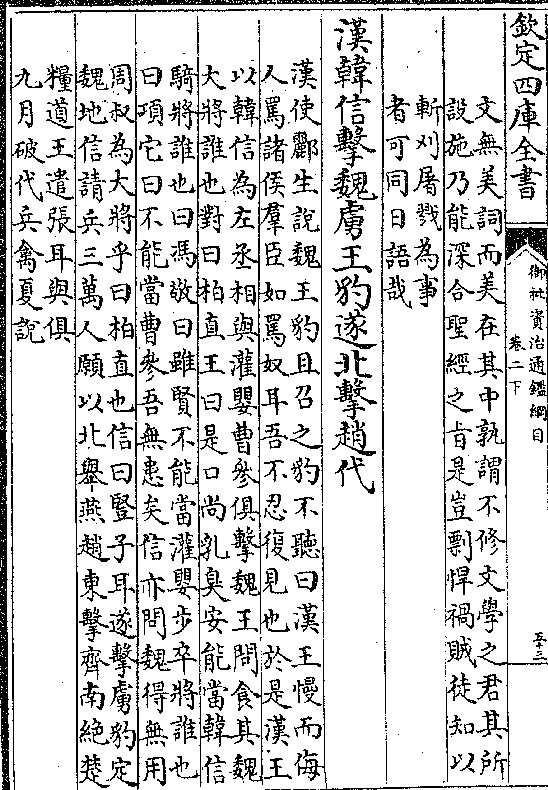 欽定四庫全書
御批資治通鑑綱目
卷二下
五十三
文無美詞而美在其中孰謂不修文學之君其所
設施乃能深合聖經之旨是豈剽悍禍賊徒知以
斬刈屠戮為事
者可同日語哉
漢韓信擊魏虜王豹遂北擊趙代
漢使酈生說魏王豹且召之豹不聽曰漢王慢而侮
人罵諸侯羣臣如罵奴耳吾不忍復見也於是漢王
以韓信為左丞相與灌嬰曹參俱擊魏王問食其魏
大將誰也對曰柏直王曰是口尚乳臭安能當韓信
騎將誰也曰馮敬曰雖賢不能當灌嬰步卒將誰也
曰項它曰不能當曹參吾無患矣信亦問魏得無用
周叔為大將乎曰柏直也信曰豎子耳遂擊虜豹定
魏地信請兵三萬人願以北舉燕趙東擊齊南絶楚
糧道王遣張耳與俱
九月破代兵禽夏說